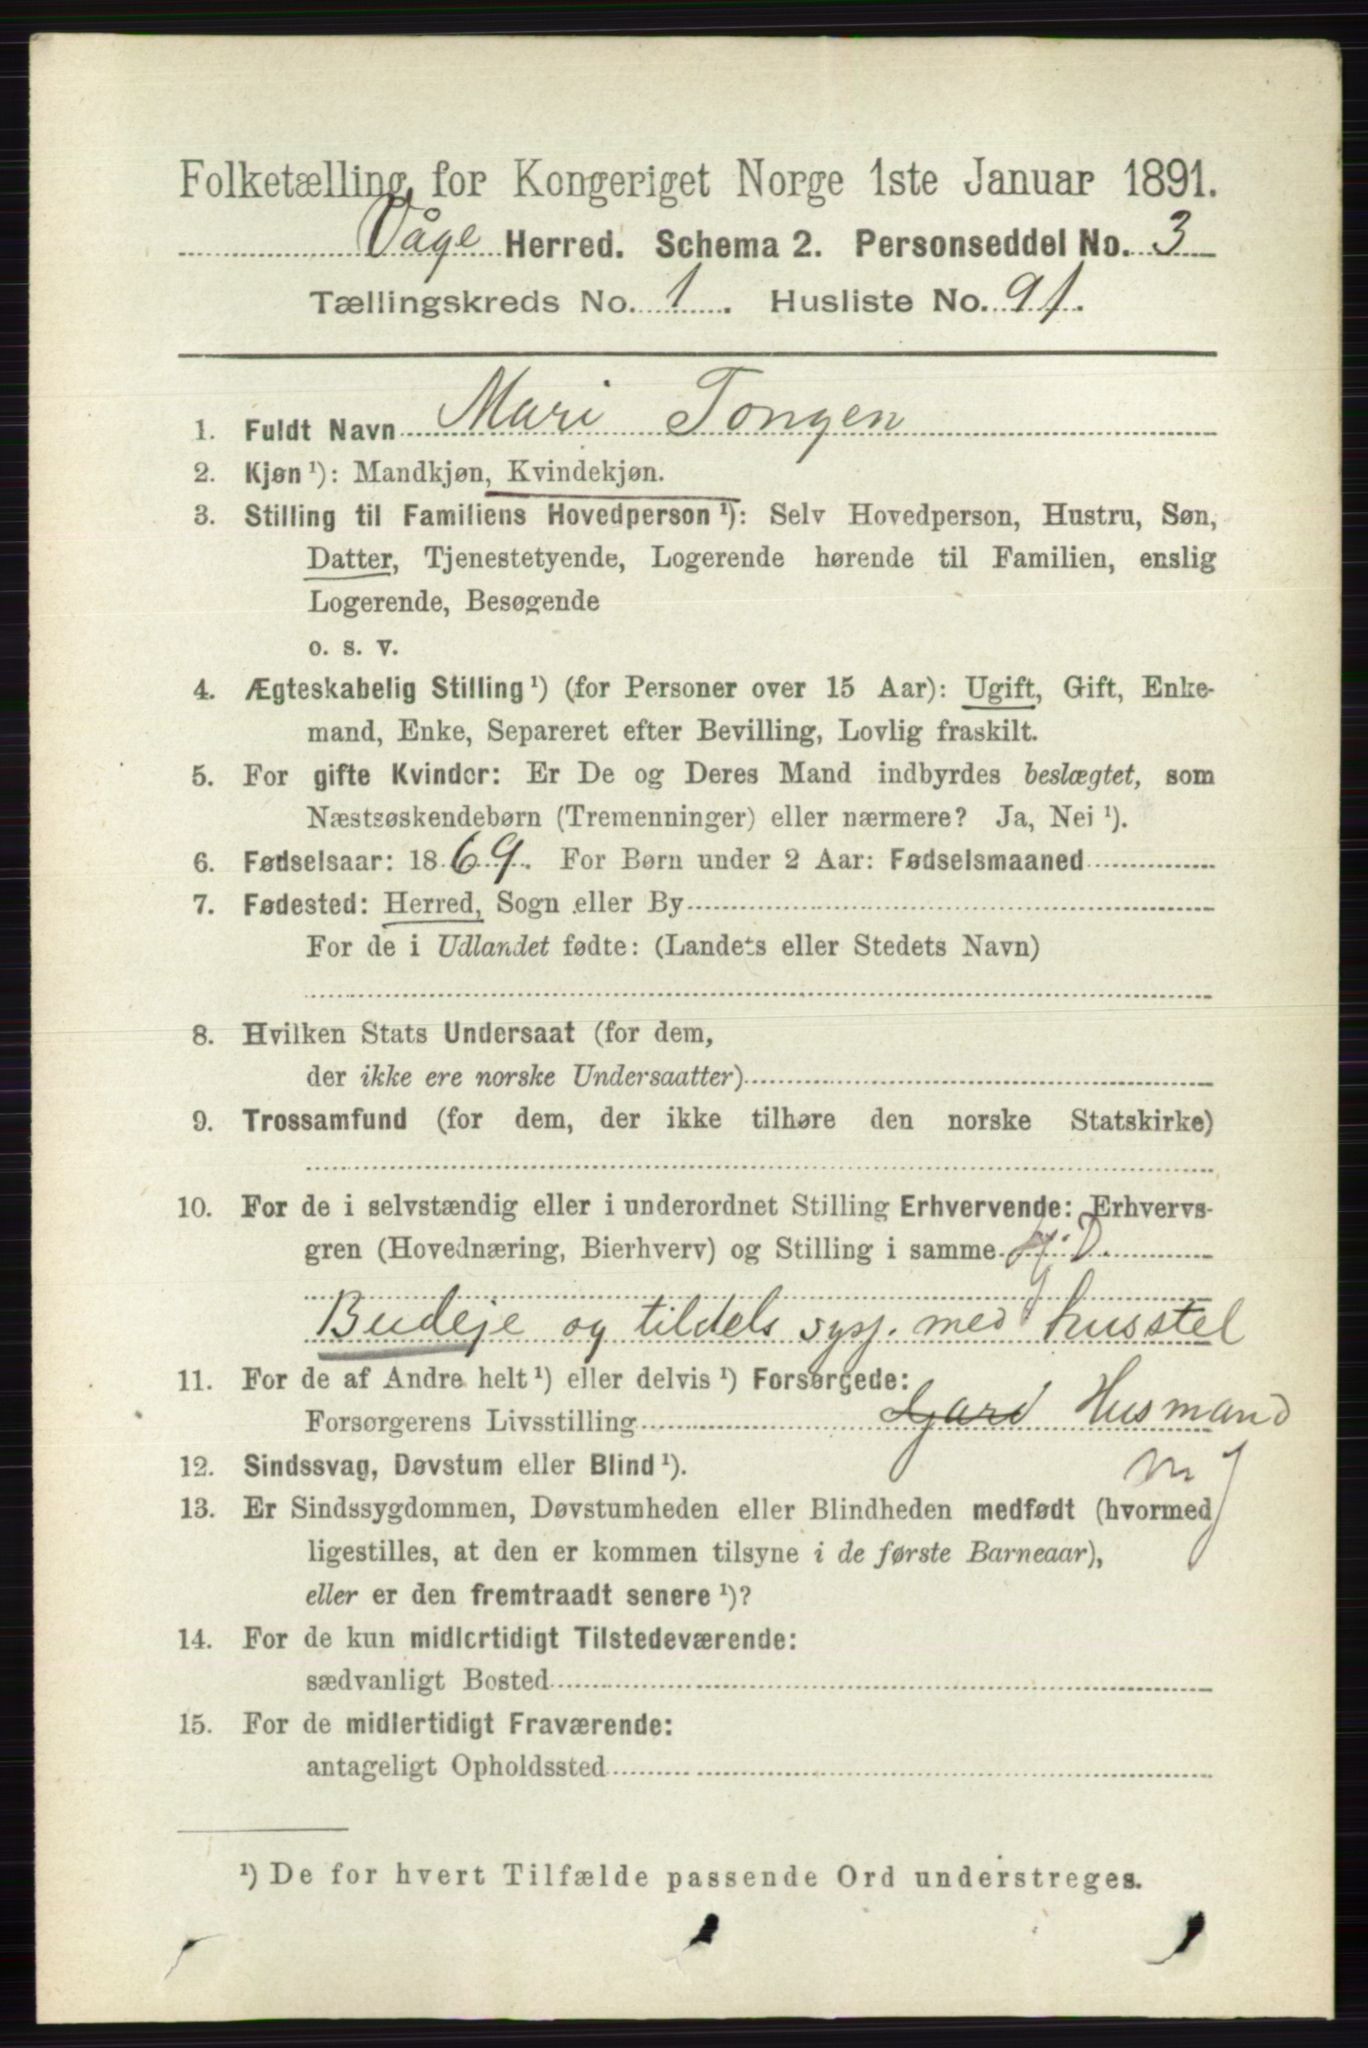 Folketælling for Kongeriget Norge 1ste Januar 1891.
Våge Herred. Schema 2. Personseddel No. 3
Tællingskreds No. 1. Husliste No. 91.
1. Fuldt Navn Mari Tongen
2. Kjøn ¹): Mandkjøn, Kvindekjøn.
3. Stilling til Familiens Hovedperson ¹): Selv Hovedperson, Hustru, Søn,
Datter, Tjenestetyende, Logerende hørende til Familien, enslig
Logerende, Besøgende
o. s. v.
4. Ægteskabelig Stilling ¹) (for Personer over 15 Aar): Ugift, Gift, Enke-
mand, Enke, Separeret efter Bevilling, Lovlig fraskilt.
5. For gifte Kvinder: Er De og Deres Mand indbyrdes beslægtet, som
Næstsøskendebørn (Tremenninger) eller nærmere? Ja, Nei ¹).
6. Fødselsaar: 1869. For Børn under 2 Aar: Fødselsmaaned
7. Fødested: Herred, Sogn eller By
For de i Udlandet fødte: (Landets eller Stedets Navn)
8. Hvilken Stats Undersaat (for dem,
der ikke ere norske Undersaatter)
9. Trossamfund (for dem, der ikke tilhøre den norske Statskirke)
10. For de i selvstændig eller i underordnet Stilling Erhvervende: Erhvervs-
gren (Hovednæring, Bierhverv) og Stilling i samme
Budeje og tildels sysj. med husstel
11. For de af Andre helt ¹) eller delvis ¹) Forsørgede:
Forsørgerens Livsstilling Gard Husmand
m j
12. Sindssvag, Døvstum eller Blind ¹).
13. Er Sindssygdommen, Døvstumheden eller Blindheden medfødt (hvormed
ligestilles, at den er kommen tilsyne i de første Barneaar),
eller er den fremtraadt senere ¹)?
14. For de kun midlertidigt Tilstedeværende:
sædvanligt Bosted
15. For de midlertidigt Fraværende:
antageligt Opholdssted
¹) De for hvert Tilfælde passende Ord understreges.